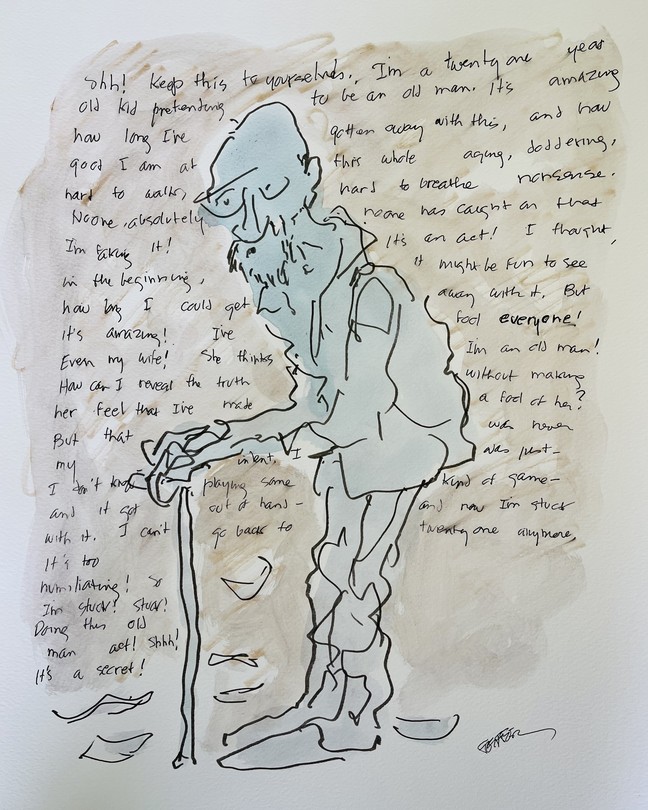 Shh! Keep this to yourselves.. I'm a twenty one year
old kid pretending to be an old man. It's amazing
how long I've gotten away with this, and how
good I am at this whole aging, doddering,
hard to walk, hard to breathe nonsense.
No one, absolutely noone has caught on that
I'm faking it! It's an act! I thought,
in the beginning, it might be fun to see
how long I could get away with it. But
it's amazing! I've fool everyone!
Even my wife! She thinks I'm an old man!
How can I reveal the truth without making
her feel that I've made a fool of her?
But that was never
my intent. I was just—
I don't know playing some kind of game—
and it got out of hand— and now I'm stuck
with it. I can't go back to twenty one anymore,
It's too
humiliating! So
I'm stuck! Stuck!
Doing this old
man act! Shhh!
It's a secret!